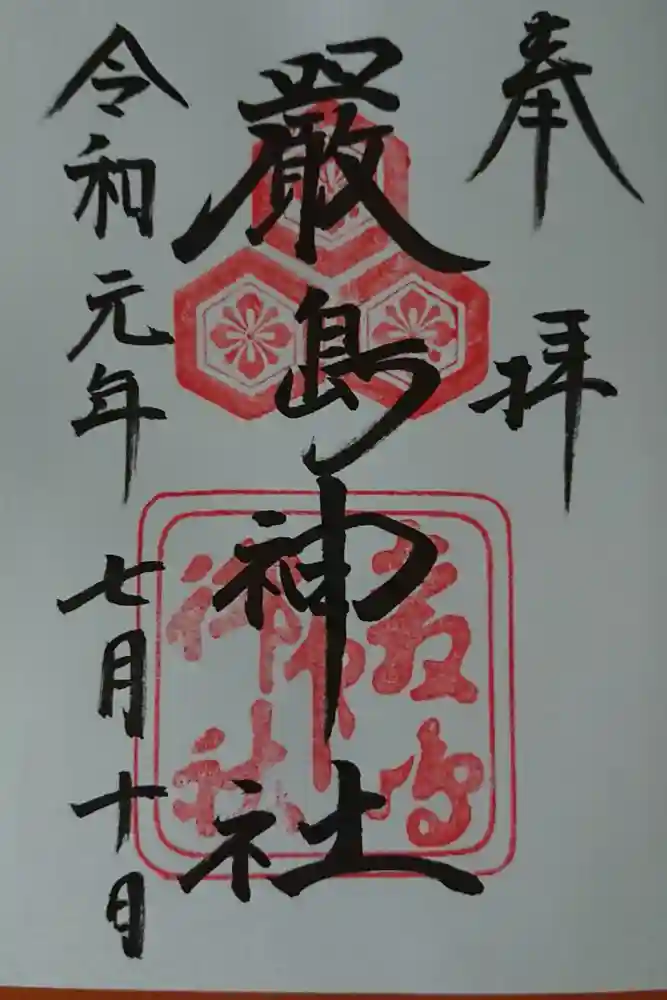 奉拝
厳島神社
令和元年七月十日